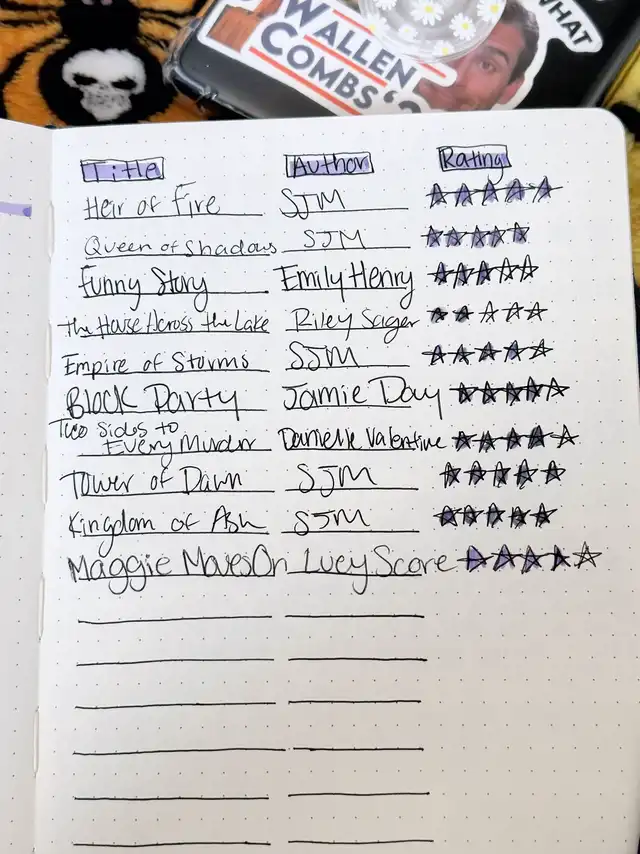 WHAT
WALLEN
COMBS'?
Title Author Rating
Heir of Fire SJM
Queen of Shadows SJM
Funny Story Emily Henry
The House Across the Lake Riley Sager
Empire of Storms SJM
Block Party Jamie Day
Two Sides to
Every Murder Danielle Valentine
Tower of Dawn SJM
Kingdom of Ash SJM
Maggie Moves On Lucy Score